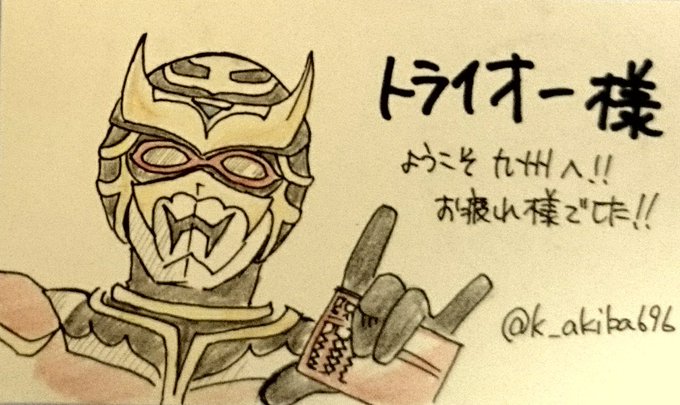 トライオー様
ようこそ 九州へ!!
お疲れ様でした!!
@k_akiba696